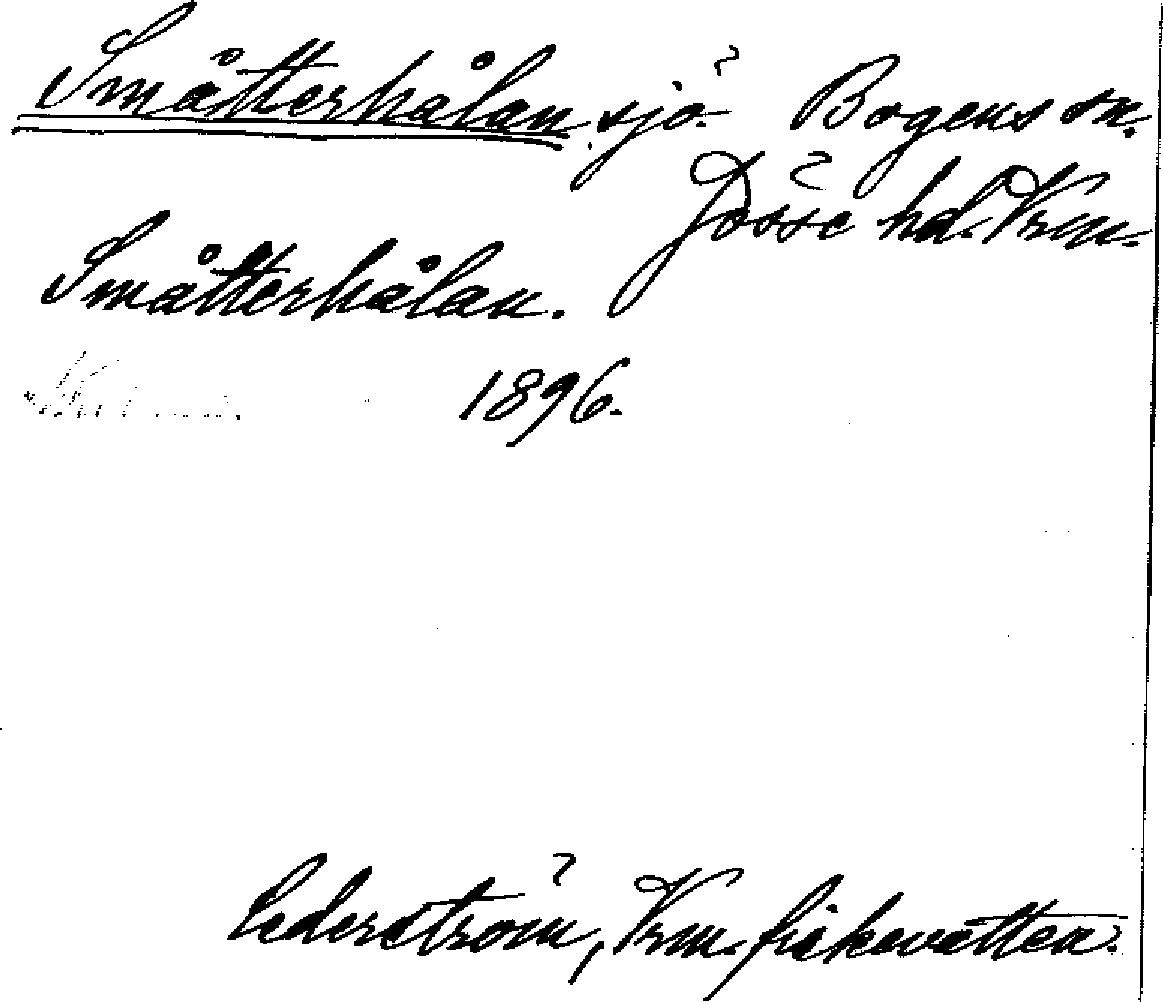 Småtterhålan sjö. Bogens sn.
Jösse hd. Vrm.
Småtterhålan.
1896.
Cederström, Vrm. fiskevatten.